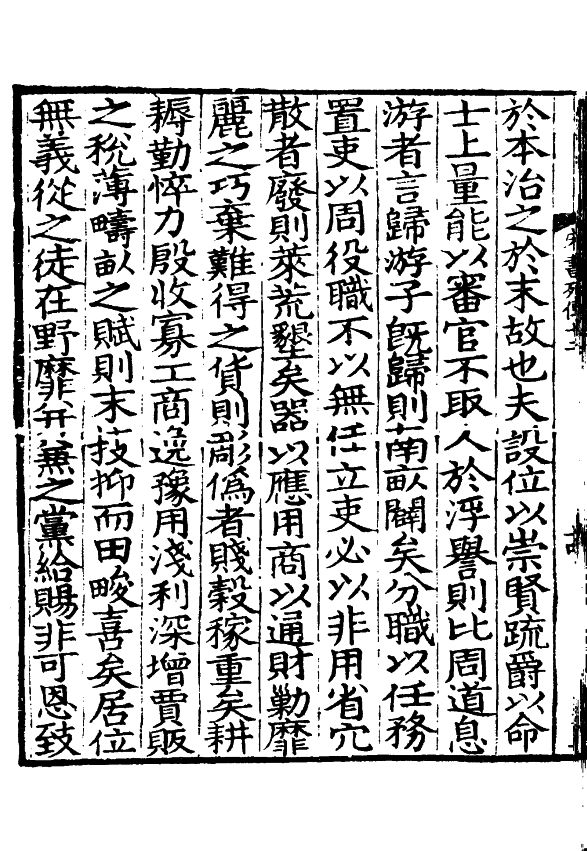 於本治之於末故也夫設位以崇賢疏爵以命
士上量能以審官不取人於浮譽則比周道息
游者言歸游子旣歸則南畝闢矣分職以任務
置吏以周役職不以無任立吏必以非用省冗
散者廢則萊荒墾矣器以應用商以通財勦靡
麗之巧棄難得之貨則彫偽者賤穀稼重矣耕
耨勤悴力殷收寡工商逸豫用淺利深增賈販
之稅薄疇畝之賦則末技抑而田畯喜矣居位
無義從之徒在野靡并兼之黨給賜非可恩致